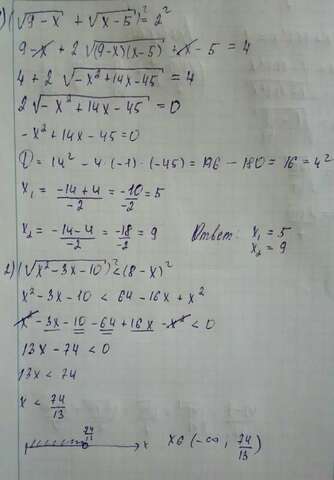 1) (√(9-x) + √(x-5))² = 2²
9-x + 2√((9-x)(x-5)) + x-5 = 4
4 + 2√(-x²+14x-45) = 4
2√(-x²+14x-45) = 0
-x²+14x-45=0
D = 14² - 4·(-1)·(-45) = 196 - 180 = 16 = 4²
x₁ = (-14+4)/(-2) = (-10)/(-2) = 5
x₂ = (-14-4)/(-2) = (-18)/(-2) = 9 Ответ: x₁ = 5
x₂ = 9
2) (√(x²-3x-10))² < (8-x)²
x²-3x-10 < 64-16x+x²
x²-3x-10-64+16x-x² < 0
13x-74 < 0
13x < 74
x < 74/13
74/13 x x∈(-∞; 74/13)